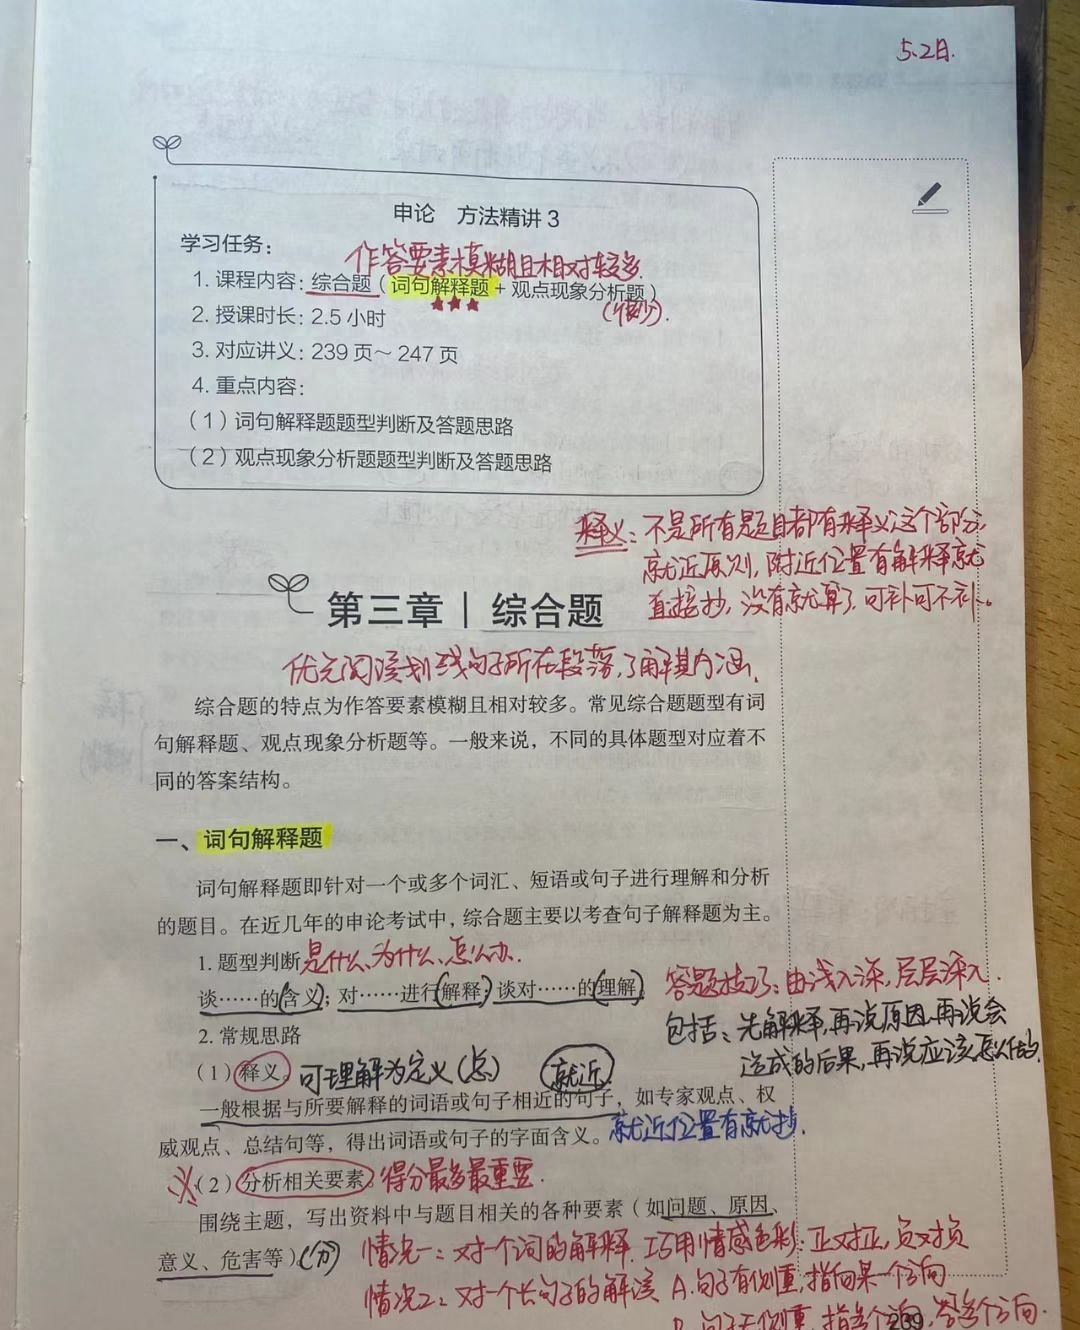 5.2日.
申论 方法精讲 3
学习任务：
作答要素模糊且相对较多.
1. 课程内容：综合题（词句解释题 + 观点现象分析题）
★★★
(很少).
2. 授课时长：2.5 小时
3. 对应讲义：239 页～ 247 页
4. 重点内容：
（1）词句解释题题型判断及答题思路
（2）观点现象分析题题型判断及答题思路
释义：不是所有题目都有释义这个部分,
就近原则, 附近位置有解释就
直接抄, 没有就算了, 可补可不补。
第三章 | 综合题
优先阅读划线句子所在段落,了解其内涵.
综合题的特点为作答要素模糊且相对较多。常见综合题题型有词
句解释题、观点现象分析题等。一般来说，不同的具体题型对应着不
同的答案结构。
一、词句解释题
词句解释题即针对一个或多个词汇、短语或句子进行理解和分析
的题目。在近几年的申论考试中，综合题主要以考查句子解释题为主。
1. 题型判断 是什么、为什么、怎么办.
谈……的含义；对……进行解释；谈对……的理解
答题技巧：由浅入深, 层层深入.
包括：先解释, 再说原因, 再说会
造成的后果, 再说应该怎么做的.
2. 常规思路
（1）释义 可理解为定义(总) 就近
一般根据与所要解释的词语或句子相近的句子，如专家观点、权
威观点、总结句等，得出词语或句子的字面含义。就近位置有就抄.
（2）分析相关要素 得分最多最重要.
围绕主题，写出资料中与题目相关的各种要素（如问题、原因、
意义、危害等）(分)
情况一：对一个词的解释. 巧用情感色彩：正对正, 负对负
情况2：对一个长句子的解读 A.句子有侧重, 指向某一个方向
239